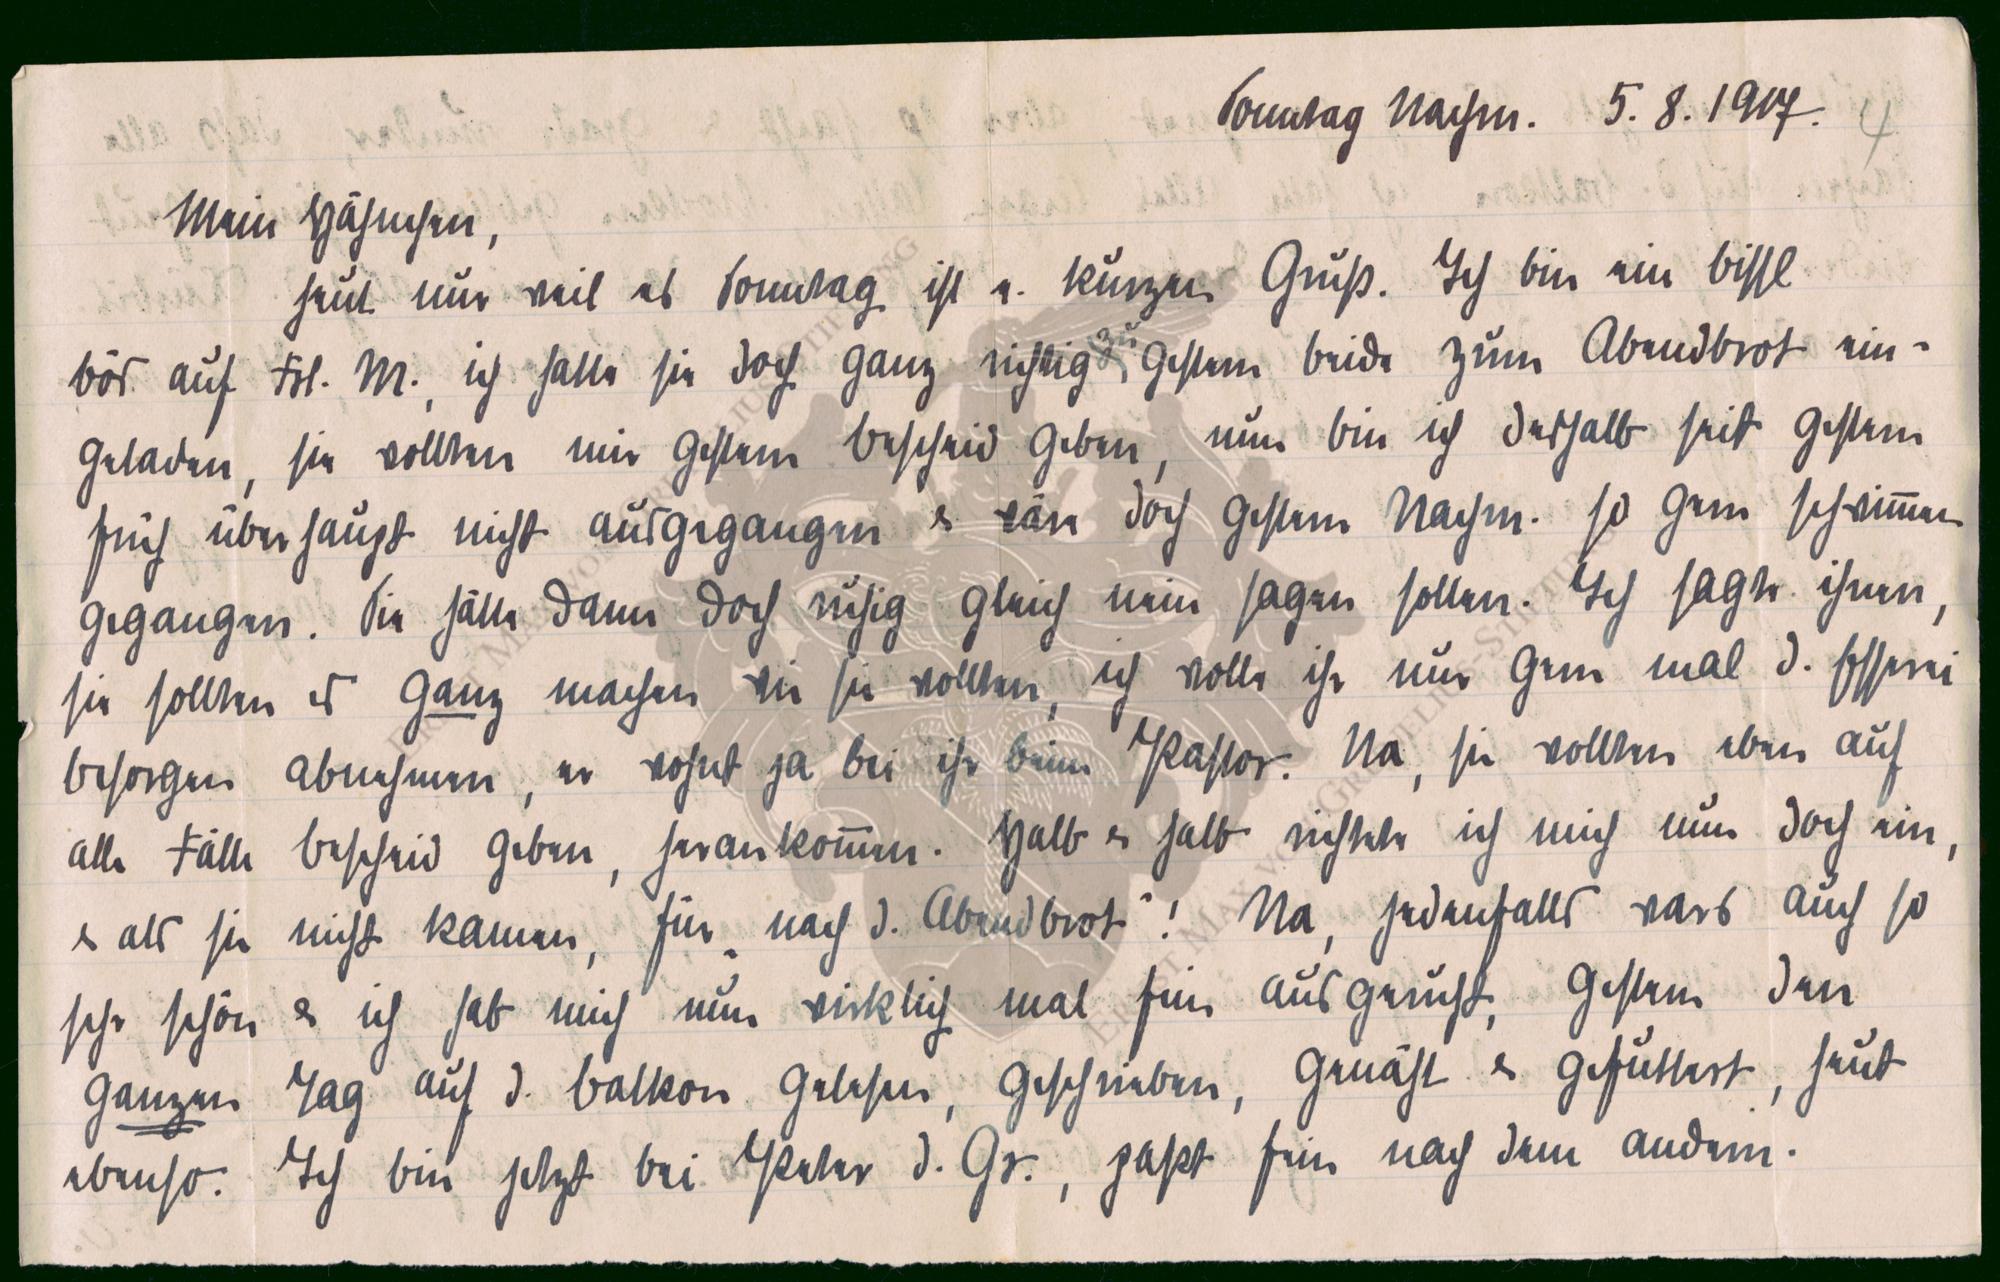 Sonntag Nachm. 5.8.1917. 4
Mein Hähnchen,
heut nur weil es Sonntag ist e. kurzen Gruß. Ich bin ein bissl
bös auf Frl. M., ich hatte sie doch ganz richtig zu gestern beide zum Abendbrot ein-
geladen, sie wollten mir gestern bescheid geben, nun bin ich deshalb seit gestern
früh überhaupt nicht ausgegangen & wäre doch gestern Nachm. so gern schwim̅en
gegangen. Sie hätte dann doch ruhig gleich nein sagen sollen. Ich sagte ihnen,
sie sollten es ganz machen wie sie wollten, ich wollte ihr nur gern mal d. Esserei
besorgen abnehmen, er wohnt ja bei ihr beim Pastor. Na, sie wollten eben auf
alle Fälle bescheid geben, herankom̅en. Halb & halb richtete ich mich nun doch ein,
& als sie nicht kamen, für „nach d. Abendbrot“! Na, jedenfalls wars auch so
sehr schön & ich hab mich nun wirklich mal fein ausgeruht, gestern den
ganzen Tag auf d. balkon gelesen, geschrieben, genäht & gefuttert, heut
ebenso. Ich bin jetzt bei Peter d. Gr., paßt fein nach dem andern.
ERNST MAX VON GRELIUS-STIFTUNG
ERNST MAX VON GRELIUS-STIFTUNG